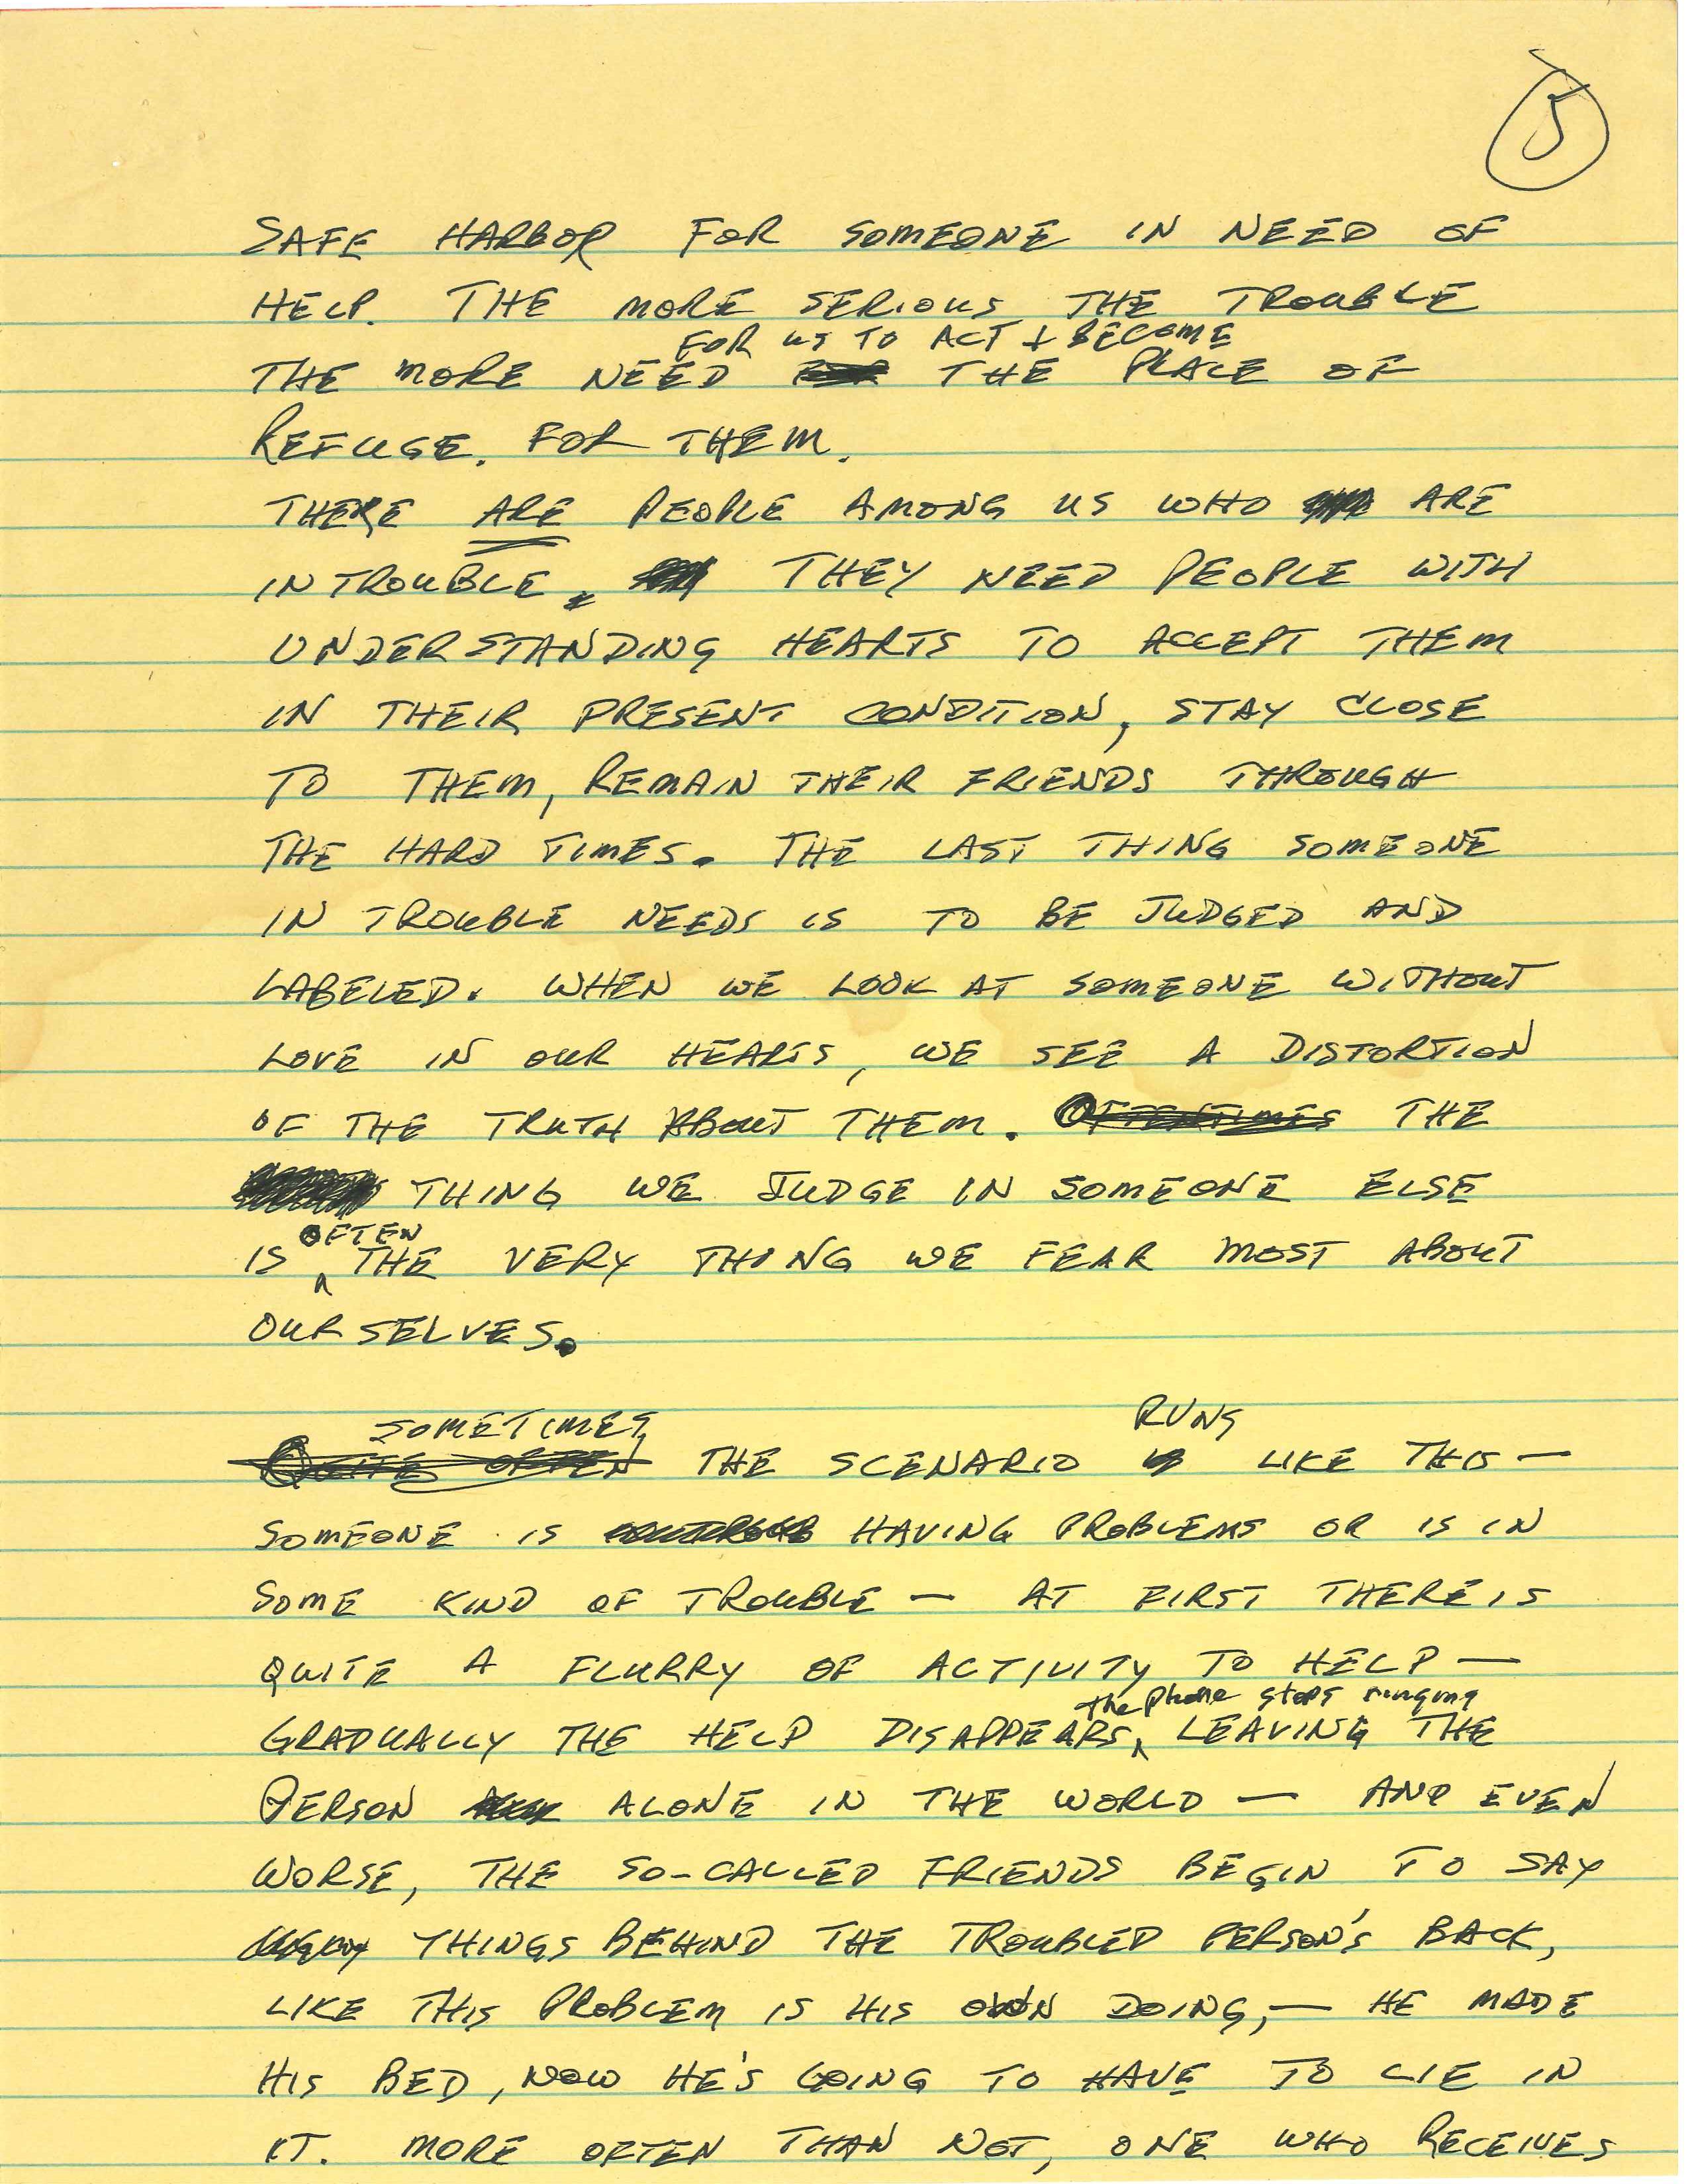 5
SAFE HARBOR FOR SOMEONE IN NEED OF
HELP. THE MORE SERIOUS THE TROUBLE
FOR US TO ACT + BECOME
THE MORE NEED THE PLACE OF
REFUGE. FOR THEM.
THERE ARE PEOPLE AMONG US WHO ARE
IN TROUBLE. THEY NEED PEOPLE WITH
UNDERSTANDING HEARTS TO ACCEPT THEM
IN THEIR PRESENT CONDITION, STAY CLOSE
TO THEM, REMAIN THEIR FRIENDS THROUGH
THE HARD TIMES. THE LAST THING SOMEONE
IN TROUBLE NEEDS IS TO BE JUDGED AND
LABELED. WHEN WE LOOK AT SOMEONE WITHOUT
LOVE IN OUR HEARTS, WE SEE A DISTORTION
OF THE TRUTH ABOUT THEM. OFTENTIMES THE
THING WE JUDGE IN SOMEONE ELSE
OFTEN
IS THE VERY THING WE FEAR MOST ABOUT
OURSELVES.
SOMETIMES RUNS
QUITE OFTEN THE SCENARIO IS LIKE THIS —
SOMEONE IS HAVING PROBLEMS OR IS IN
SOME KIND OF TROUBLE — AT FIRST THERE IS
QUITE A FLURRY OF ACTIVITY TO HELP —
the phone stops ringing
GRADUALLY THE HELP DISAPPEARS, LEAVING THE
PERSON ALONE IN THE WORLD — AND EVEN
WORSE, THE SO-CALLED FRIENDS BEGIN TO SAY
THINGS BEHIND THE TROUBLED PERSON'S BACK,
LIKE THIS PROBLEM IS HIS OWN DOING, — HE MADE
HIS BED, NOW HE'S GOING TO HAVE TO LIE IN
IT. MORE OFTEN THAN NOT, ONE WHO RECEIVES